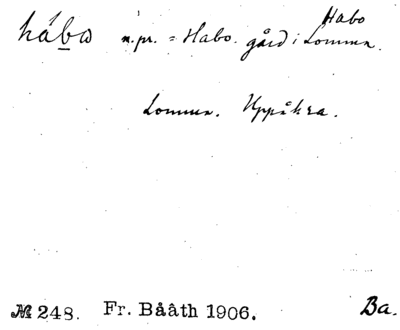 Habo
håbo n.pr. = Habo. gård i Lommen.
Lommen. Uppåkra.
№ 248. Fr. Bååth 1906. Ba.